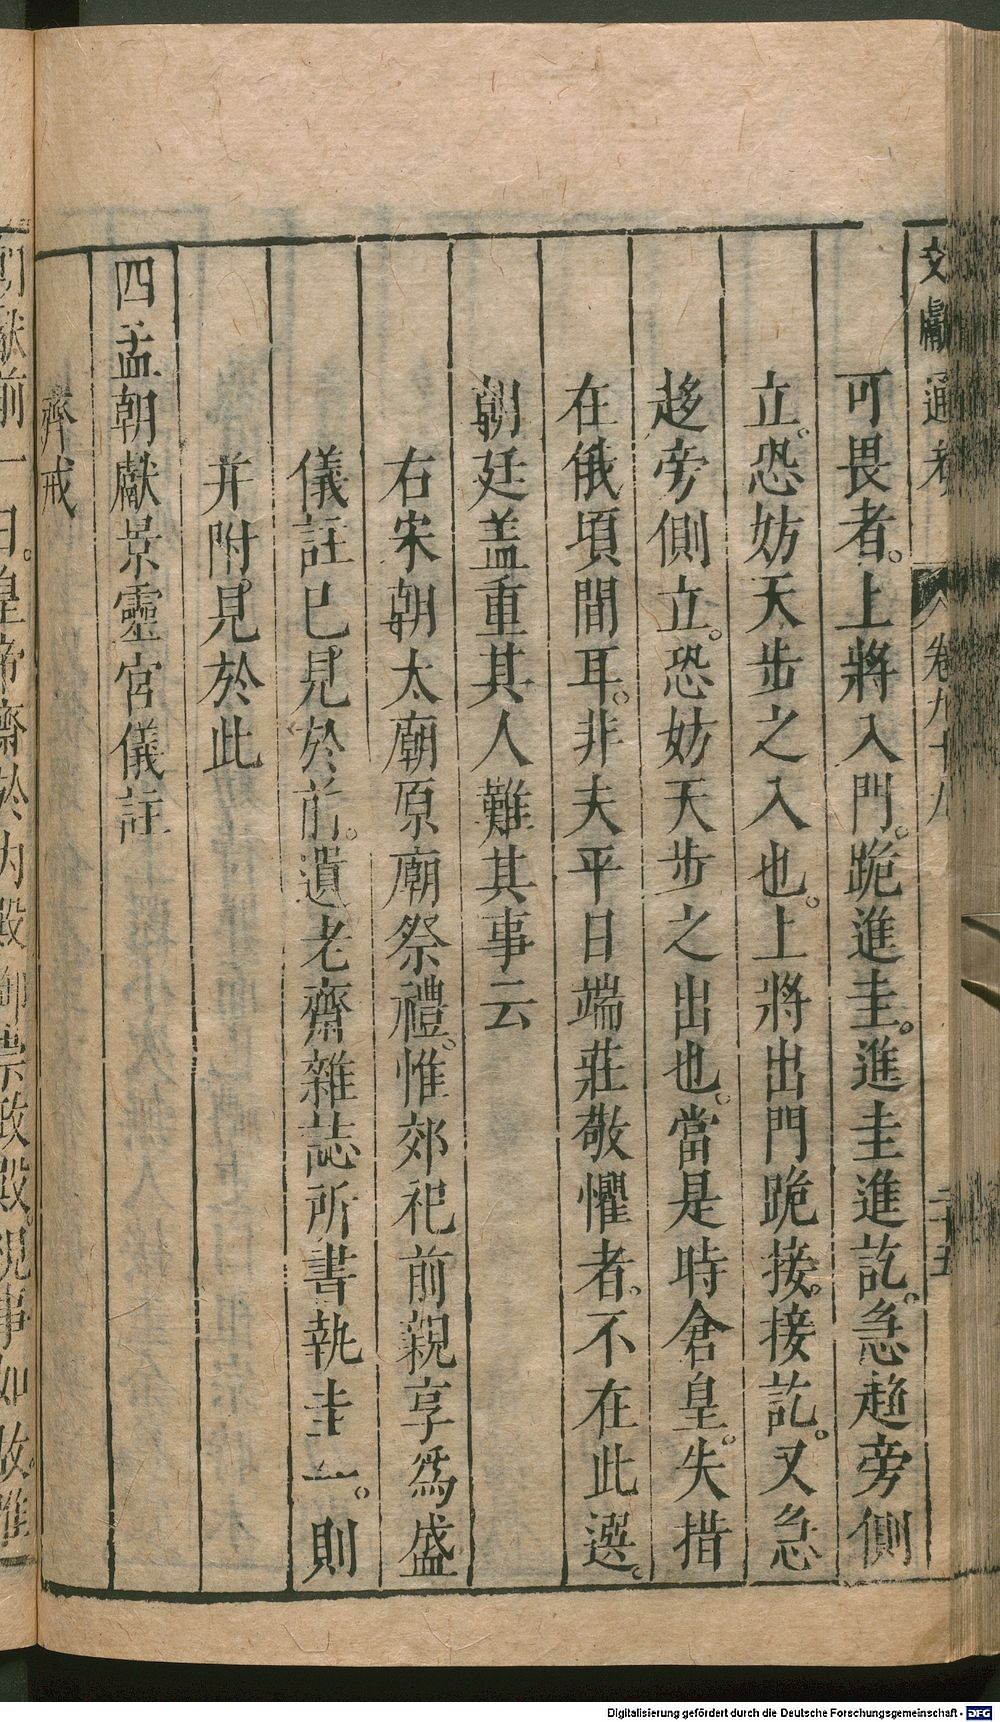 文獻通考 卷九十八 二十五
可畏者。上將入門。跪進圭。進圭進訖。急趨旁側
立。恐妨天步之入也。上將出門跪接。接訖。又急
趍旁側立。恐妨天步之出也。當是時倉皇。失措
在俄頃間耳。非夫平日端莊敬懼者。不在此選。
朝廷盖重其人難其事云
右宋朝太廟原廟祭禮。惟郊祀前親享爲盛
儀註已見於前。遺老齋雜誌所書執圭一。則
并附見於此
四孟朝獻景靈宮儀註
齊戒
朝獻前一日。皇帝齋於內殿御崇政殿視事如故。惟
Digitalisierung gefördert durch die Deutsche Forschungsgemeinschaft - DFG